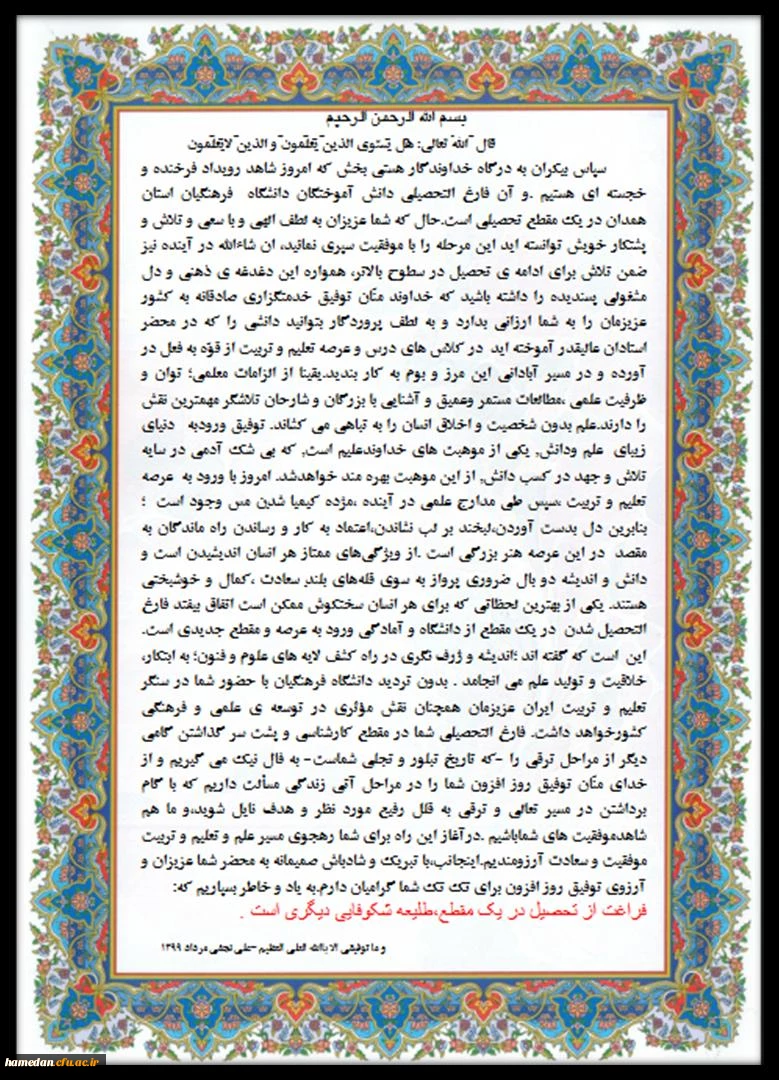 بسم الله الرحمن الرحیم
قال الله تعالی: هل یستوی الذین یعلمون و الذین لایعلمون
سپاس بیکران به درگاه خداوندگار هستی بخش که امروز شاهد رویداد فرخنده و
خجسته ای هستیم .و آن فارغ التحصیلی دانش آموختگان دانشگاه فرهنگیان استان
همدان در یک مقطع تحصیلی است.حال که شما عزیزان به لطف الهی و با سعی و تلاش و
پشتکار خویش توانسته اید این مرحله را با موفقیت سپری نمائید، ان شاءالله در آینده نیز
ضمن تلاش برای ادامه ی تحصیل در سطوح بالاتر، همواره این دغدغه ی ذهنی و دل
مشغولی پسندیده را داشته باشید که خداوند منّان توفیق خدمتگزاری صادقانه به کشور
عزیزمان را به شما ارزانی بدارد و به لطف پروردگار بتوانید دانشی را که در محضر
استادان عالیقدر آموخته اید در کلاس های درس و عرصه تعلیم و تربیت از قوّه به فعل در
آورده و در مسیر آبادانی این مرز و بوم به کار بندید.یقینا از الزامات معلمی؛ توان و
ظرفیت علمی ،مطالعات مستمر وعمیق و آشنایی با بزرگان و شارحان تلاشگر مهمترین نقش
را دارند.علم بدون شخصیت و اخلاق انسان را به تباهی می کشاند. توفیق ورودبه دنیای
زیبای علم ودانش, یکی از موهبت های خداوندعلیم است, که بی شک آدمی در سایه
تلاش و جهد در کسب دانش, از این موهبت بهره مند خواهدشد. امروز با ورود به عرصه
تعلیم و تربیت ،سپس طی مدارج علمی در آینده ،مژده کیمیا شدن مس وجود است ؛
بنابرین دل بدست آوردن،لبخند بر لب نشاندن،اعتماد به کار و رساندن راه ماندگان به
مقصد در این عرصه هنر بزرگی است .از ویژگی‌های ممتاز هر انسان اندیشیدن است و
دانش و اندیشه دو بال ضروری پرواز به سوی قله‌های بلند سعادت ،کمال و خوشبختی
هستند. یکی از بهترین لحظاتی که برای هر انسان سختکوش ممکن است اتفاق بیفتد فارغ
التحصیل شدن در یک مقطع از دانشگاه و آمادگی ورود به عرصه و مقطع جدیدی است.
این است که گفته اند ؛اندیشه و ژرف نگری در راه کشف لایه های علوم و فنون؛ به ابتکار،
خلاقیت و تولید علم می انجامد . بدون تردید دانشگاه فرهنگیان با حضور شما در سنگر
تعلیم و تربیت ایران عزیزمان همچنان نقش مؤثری در توسعه ی علمی و فرهنگی
کشورخواهد داشت. فارغ التحصیلی شما در مقطع کارشناسی و پشت سر گذاشتن گامی
دیگر از مراحل ترقی را -که تاریخ تبلور و تجلی شماست- به فال نیک می گیریم و از
خدای منّان توفیق روز افزون شما را در مراحل آتی زندگی مسألت داریم که با گام
برداشتن در مسیر تعالی و ترقی به قلل رفیع مورد نظر و هدف نایل شوید،و ما هم
شاهدموفقیت های شماباشیم .درآغاز این راه برای شما رهجوی مسیر علم و تعلیم و تربیت
موفقیت و سعادت آرزومندیم.اینجانب،با تبریک و شادباش صمیمانه به محضر شما عزیزان و
آرزوی توفیق روز افزون برای تک تک شما گرامیان دارم.به یاد و خاطر بسپاریم که:
فراغت از تحصیل در یک مقطع،طلیعه شکوفایی دیگری است .
و ما توفیقی الا باالله العلی العظیم –علی نجفی مرداد ۱۳۹۹
hamedan.cfu.ac.ir